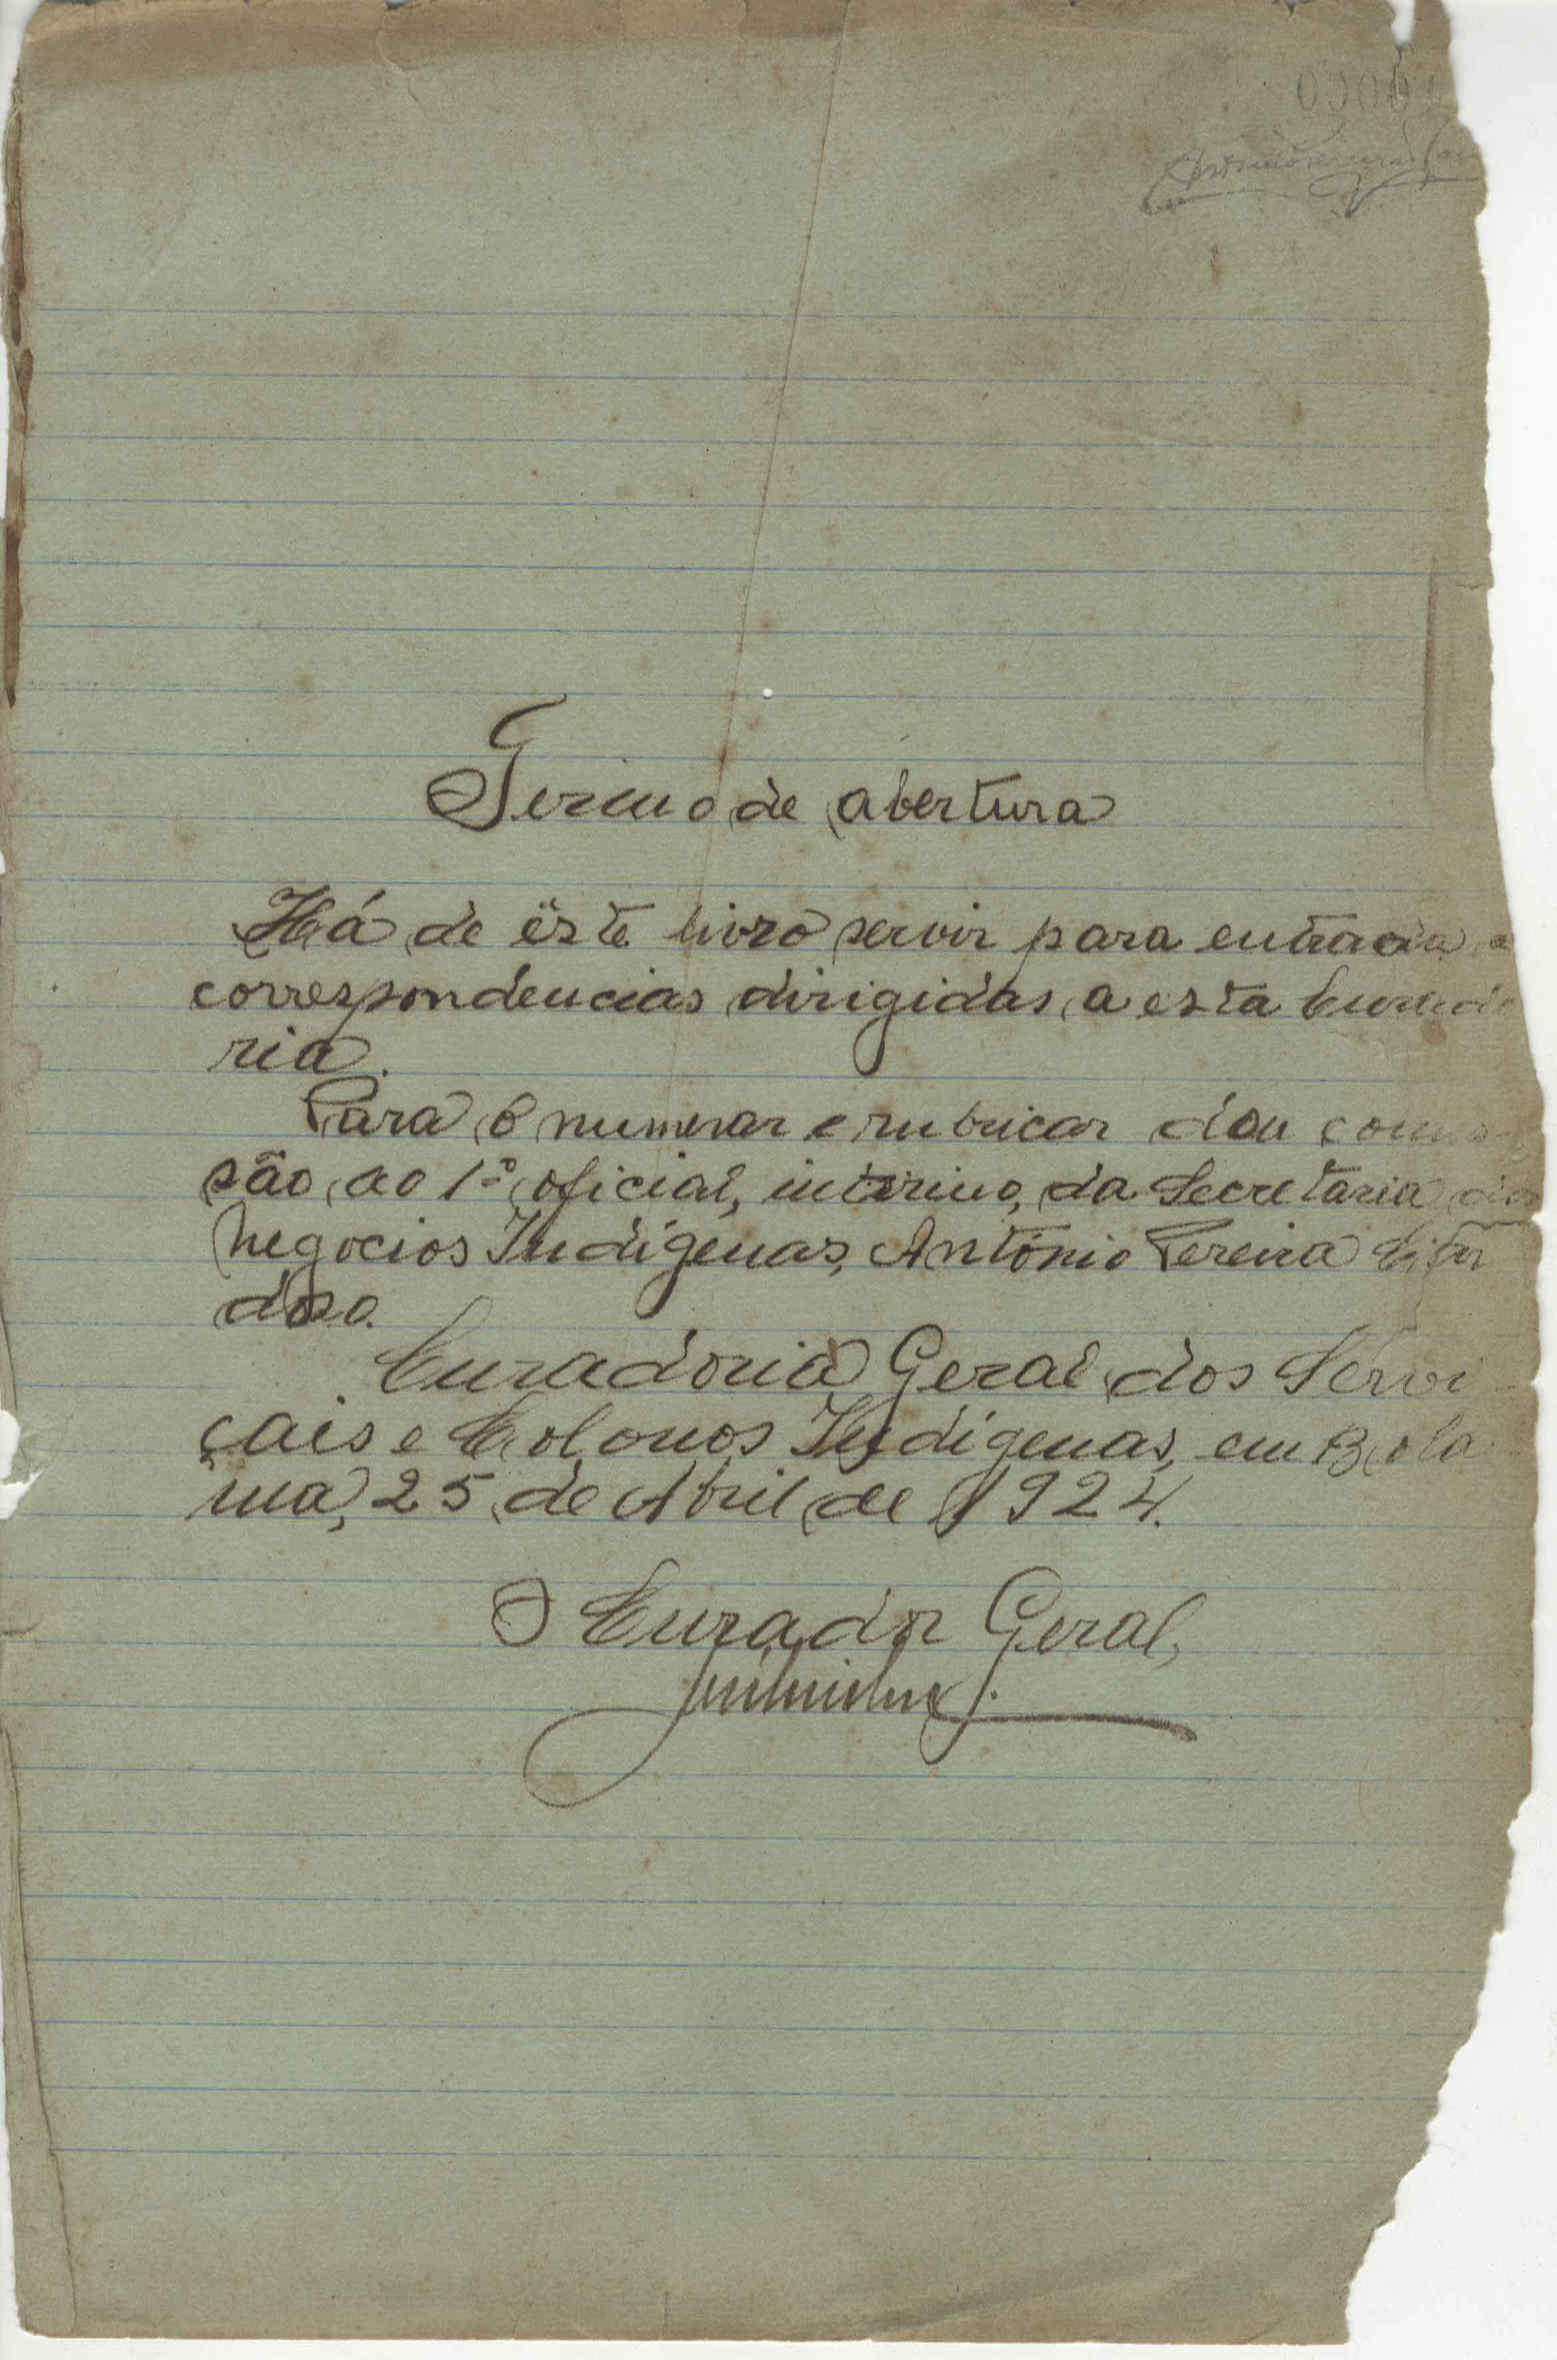 Termo de abertura
Há de êste livro servir para entrada
correspondencias dirigidas a esta Curado
ria.
Para o numerar e rubricar dou comis
são ao 1º oficial, interino, da Secretaria dos
Negocios Indígenas, António Pereira
doso.
Curadoria Geral dos Servi
çais e Colonos Indígenas, em Bola
ma, 25 de Abril de 1924.
O Curador Geral,